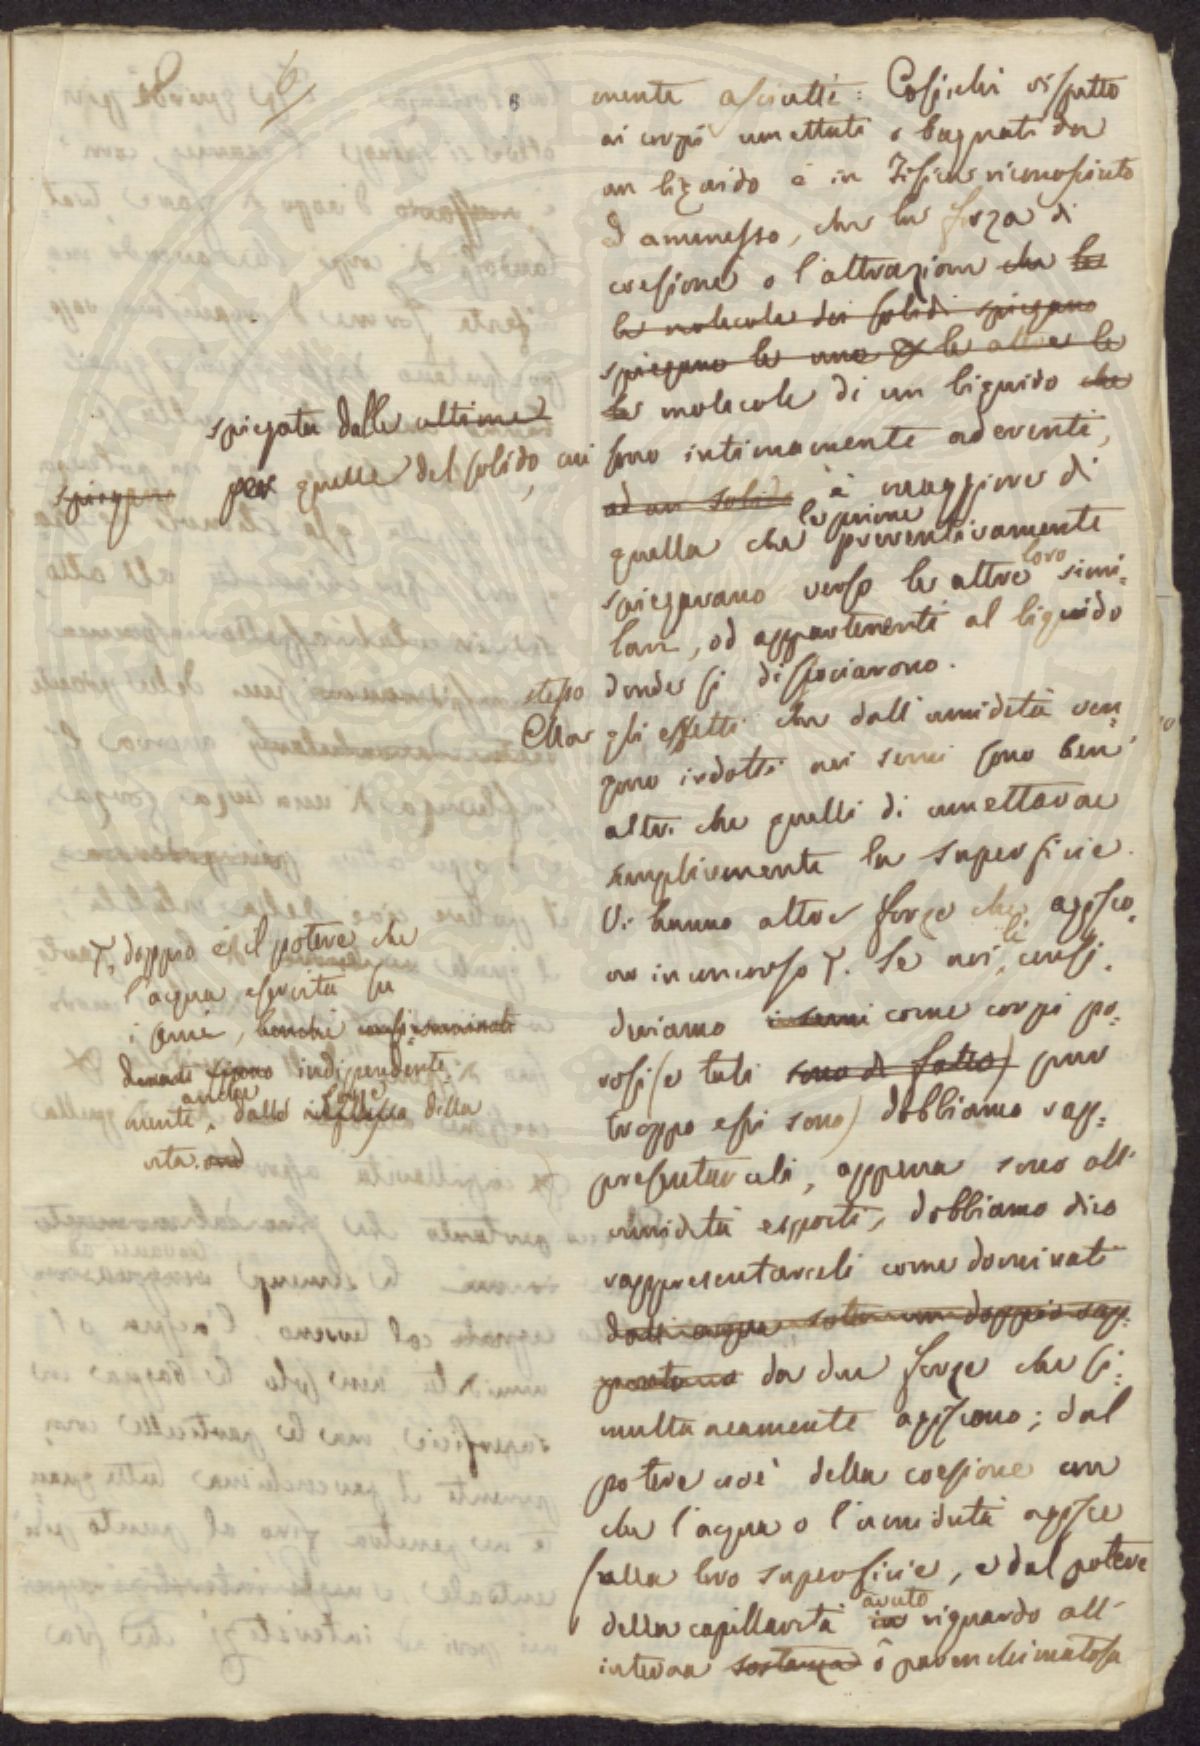 6
8
mente asciutte: Cosicchè rispetto
ai corpi umettati o bagnati da
un liquido è in Fisica riconosciuto
ed ammesso, che la forza di
coesione o l'attrazione che le
le molecole dei solidi spiegano
spiegano le une le altre le
le molecole di un liquido che
spiegata dalle ultime
spiegano per quelle del solido, cui
sono intimamente aderenti,
ad un solido è maggiore di
le prime
quella che preventivamente
loro
spiegavano verso le altre simi-
lari, od appartenenti al liquido
stesso donde si dissociarono.
Ma gli effetti che dall'umidità ven-
gono indotti nei semi sono ben
altri che quelli di umettarne
semplicemente la superficie.
Vi hanno altre forze che agisco-
no in concorso. Se noi li consi-
deriamo i semi come corpi po-
rosi (e tali sono di fatto) pur
troppo essi sono) dobbiamo rap-
presentarceli, appena sono all'
umidità esposti, dobbiamo dico
rappresentarceli come dominati
dall'acqua sotto un doppio rap-
portano da due forze che si-
multaneamente agiscono; dal
potere cioè della coesione con
che l'acqua o l'umidità agisce
sulla loro superficie, e dal potere
avuto
della capillarità in riguardo all'
interna sostanza o parenchimatosa
doppio è il potere che
l'acqua esercita su
i semi, benchè
indipendente-
anche forze
mente, dalle della
vita.